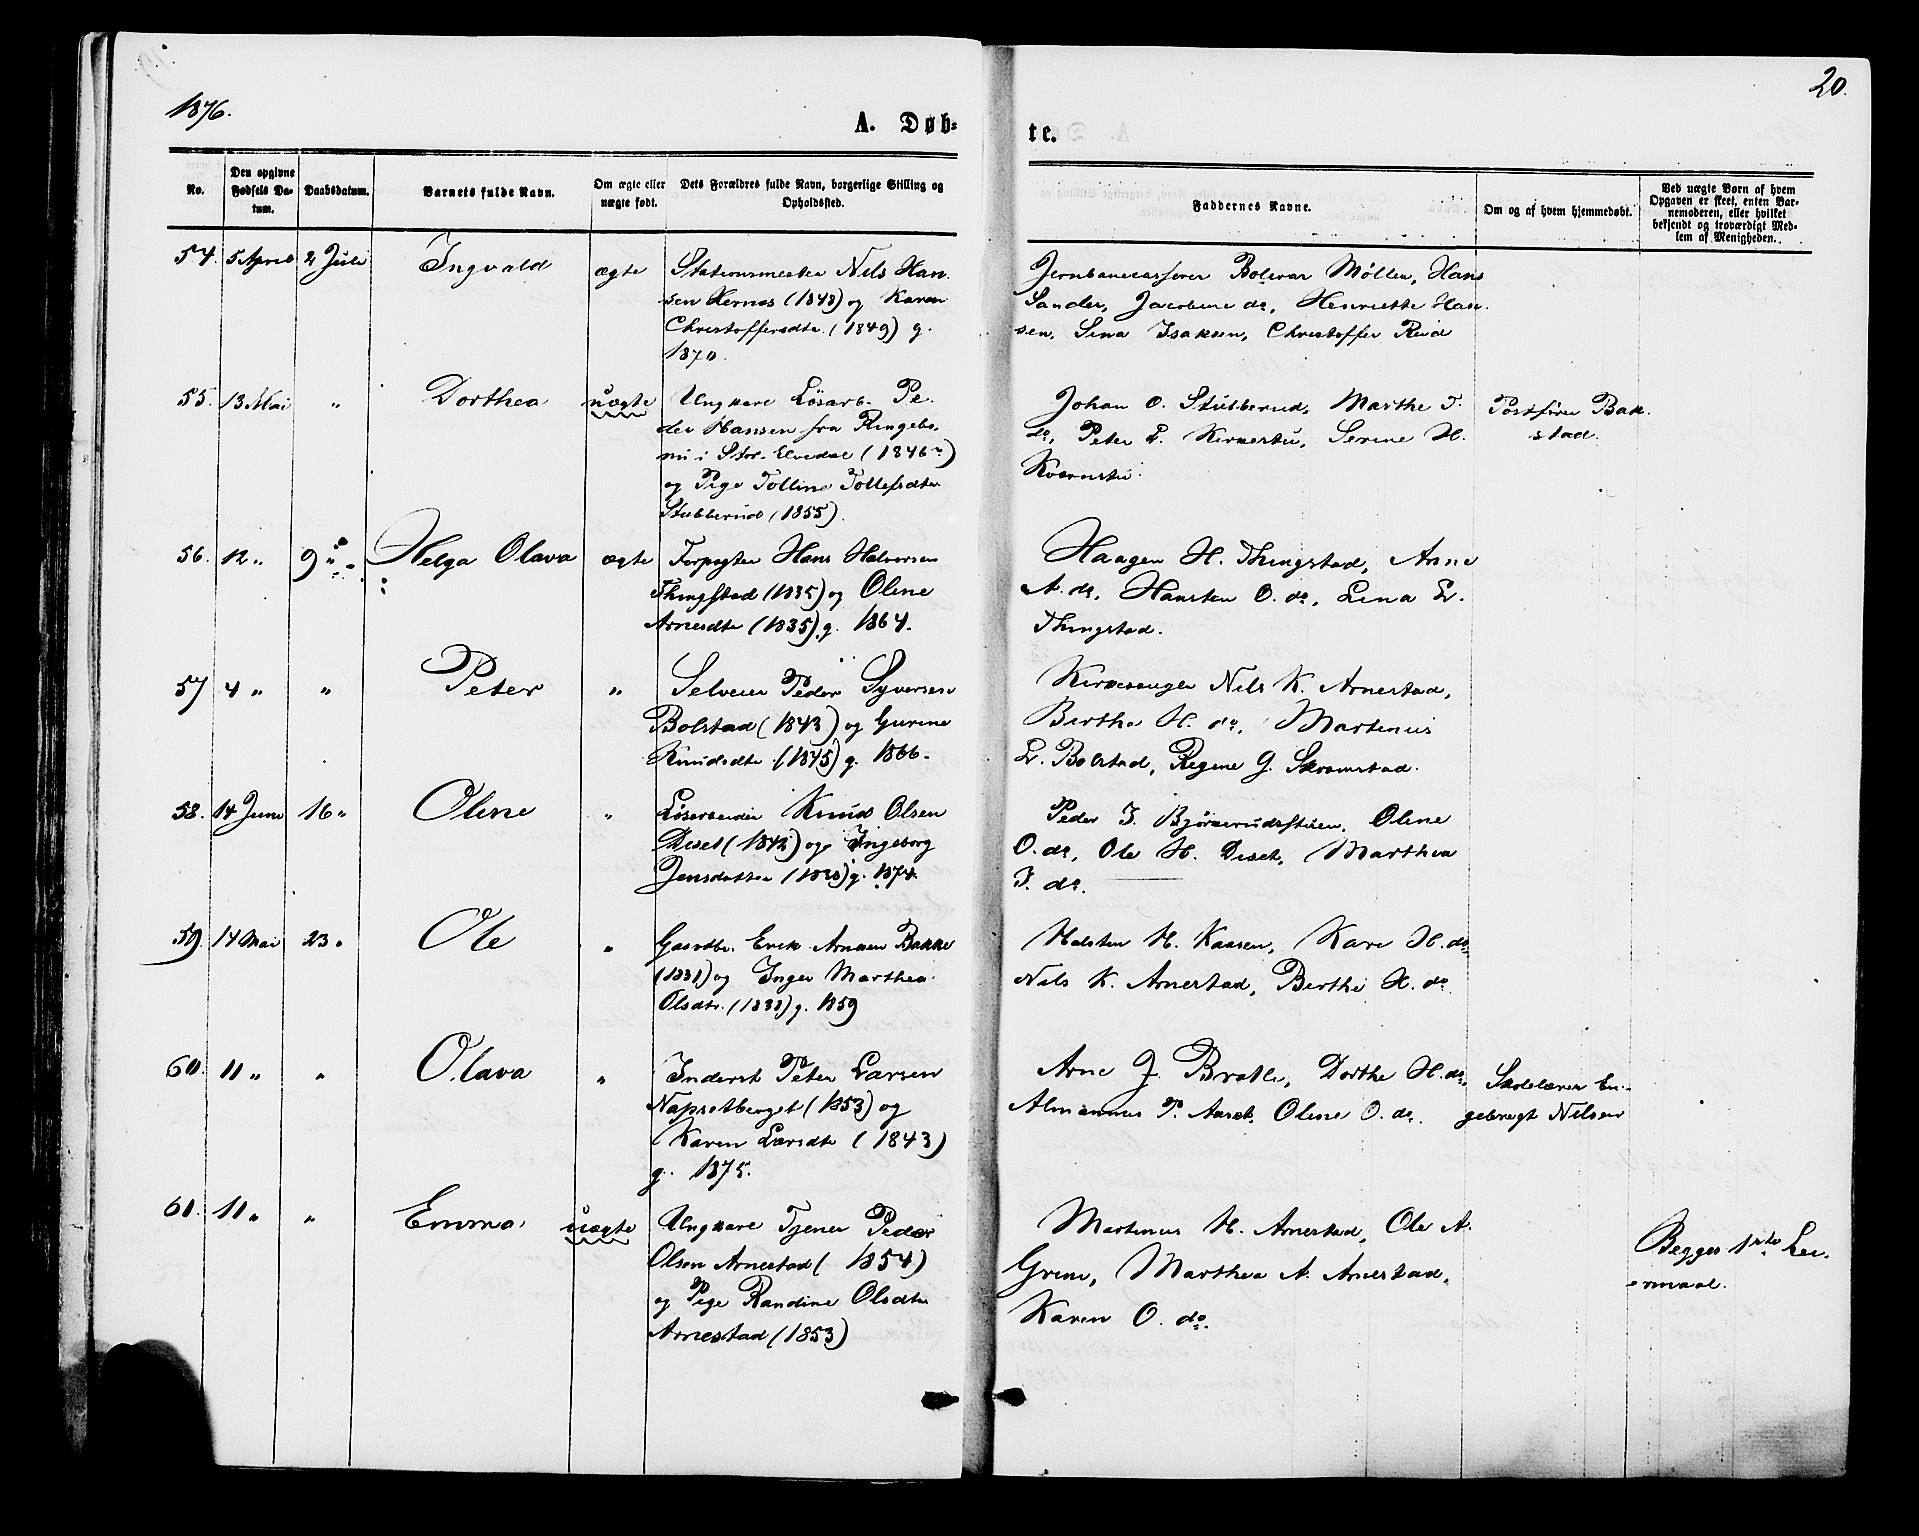 1876.
20.
A. Døb=
te.
No.
Den opgivne Fødsels Da-tum.
Daabsdatum.
Barnets fulde Navn.
Om ægte eller uægte født.
Dets Forældres fulde Navn, borgerlige Stilling og Opholdssted.
Faddernes Navne.
Om og af hvem hjemmedøbt.
Ved uægte Børn af hvem Opgaven er skeet, enten Bar-nemoderen, eller hvilket bekjendt og troværdigt Med-lem af Menigheden.
54. 5 April 2 Juli Ingvald ægte
Stationsmester Nils Han-
sen (1848) og Karen
Christoffersdtr. (1849) g.
1870.
Møller, Hans
Sander, Jacobine do, Henriette Han-
sen, Sina Isaksen, Christoffer
55. 13 Mai " Dorthea uægte
Ungkarl Løsarb. Pe-
der Hansen fra Ringebo,
nu i Stor-Elvedal (1846)
og Pige Tolline Tollefsdtr.
Stubberud (1855).
Johan O. Stubberud, Marthe T.
do, Peter L. Kværnstu, Serine H.
Kværnstu.
Bak-
stad.
56. 12 " 9 " Helga Olava ægte
Forpagter Hans Halvorsen
Thingstad (1835) og Oline
Arnesdtr (1835) g. 1864.
Haagen H. Thingstad, Anne
A. do, Hansten O. do, Lina L.
Thingstad.
57 4 " " Peter "
Selveier Peder Syversen
Bolstad (1843) og Gurine
Knudsdtr (1845) g. 1866.
Kirkesanger Nils K. Arnestad,
Berthe H. do, Martinus
L. Bolstad, Regine G. Skramstad.
58. 14 Juni 16 " Oline "
Løsarbeider Knud Olsen
Diset (1842) og Ingeborg
Jensdatter g. 1874.
Peder J. Bjørnerudstuen, Oline
O. do, Ole H. Diset, Marthea
J. do.
59. 14 Mai 23 " Ole "
Gaardbr. Erik Arnesen Bakke
(1831) og Inger Marthea
Olsdtr. (1838) g. 1859
Halsten H. Kaasen, Kari H. do
Nils K. Arnestad, Berthe H. do
60. 11 " " Olava "
Inderst Peter Larsen
Napsetberget (1853) og
Karen Larsdtr (1843)
g. 1875.
Arne J. Bratli, Dorthe H. do,
Almannus P. Aaset, Oline O. do.
Skolelærer En-
gebregt Nilsen
61. 11 " " Emma uægte
Ungkarl Tjener Peder
Olsen Arnestad (1854)
og Pige Randine Olsdtr
Arnestad (1853)
Martinus H. Arnestad, Ole A.
Grini, Marthea A. Arnestad,
Karen O. do.
Begges 1ste Lei-
ermaal.